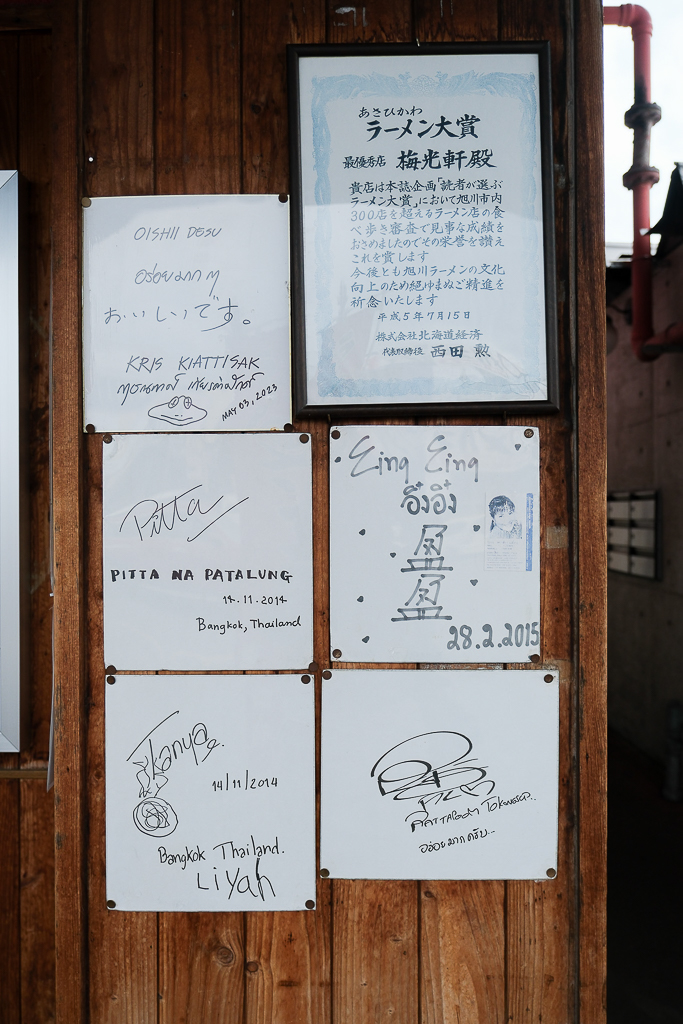 あさひかわ
ラーメン大賞
最優秀店 梅光軒殿
貴店は本誌企画「読者が選ぶ
ラーメン大賞」において旭川市内
300店を超えるラーメン店の食
べ歩き審査で見事な成績を
おさめましたのでその栄誉を讃え
これを賞します
今後とも旭川ラーメンの文化
向上のため絶ゆまぬご精進を
祈念いたします
平成5年7月15日
株式会社北海道経済
代表取締役 西田 勲
OISHII DESU
おいしいです。
KRIS KIATTISAK
MAY 03, 2023
Pitta
PITTA NA PATALUNG
14.11.2014
Bangkok, Thailand
Eing Eing
อิ๋งอิ๋ง
盈
盈
28.2.2015
Tkanya
14/11/2014
Bangkok Thailand.
Liyah
อร่อยมากครับ..